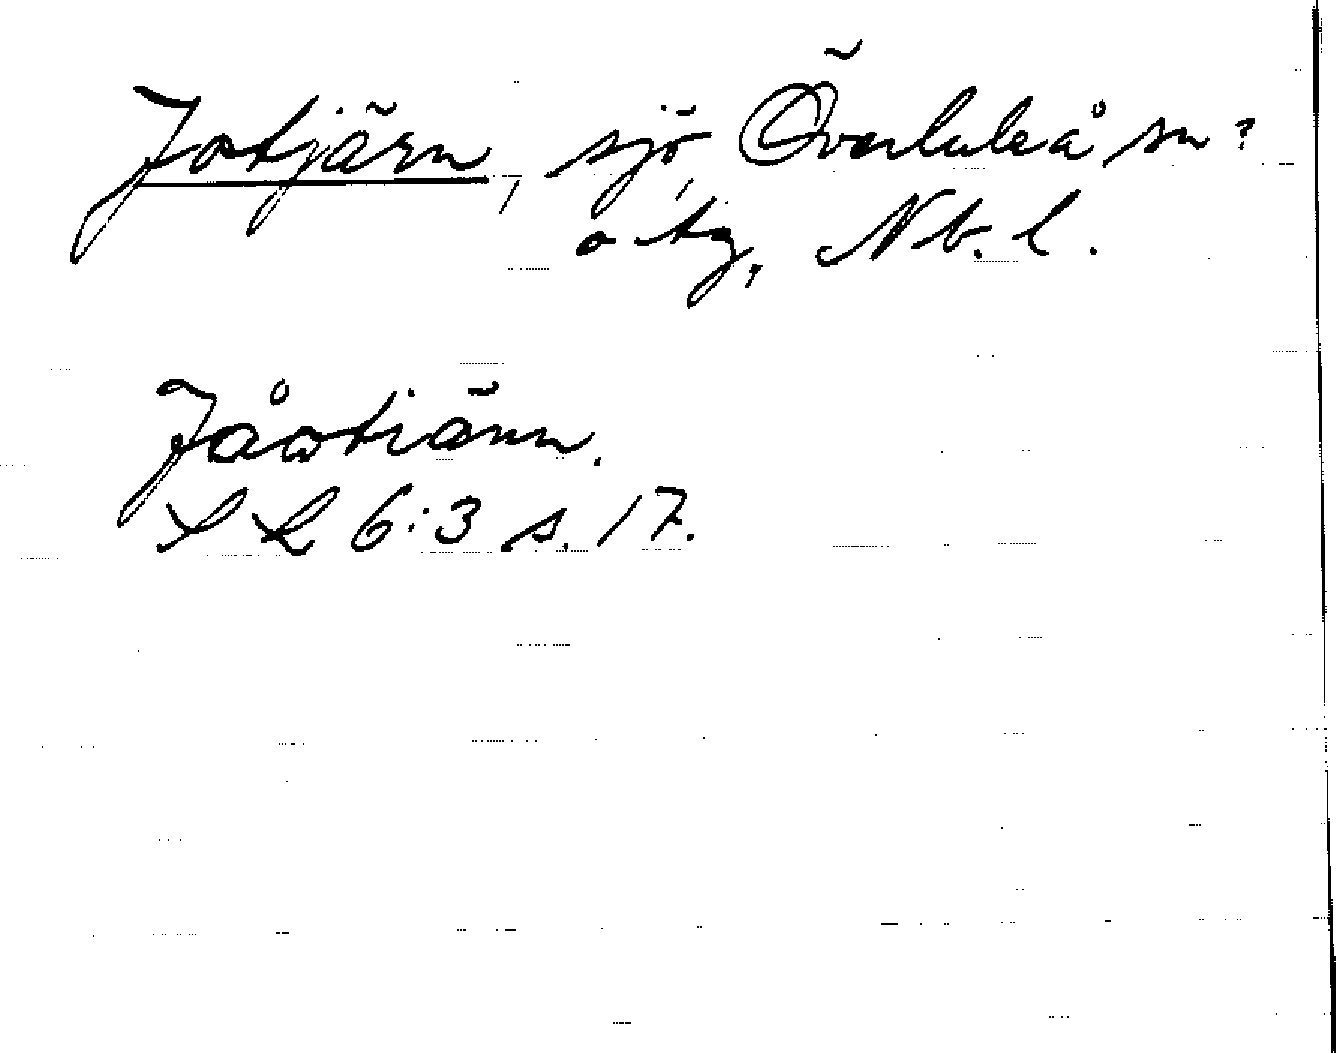 Jotjärn, sjö, Överluleå sn?
o tg, Nb. l.
Jåotiänn.
S L 6:3 s. 17.